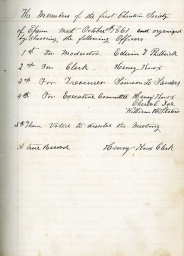 The Members of the first Christian Society
of Epsom met October 1861 and organized
by choosing the following Officers
1st For Moderator Edwin L Philbrick
2d For Clerk Henry Knox
3d For Treasurer Simeon L Sanders
4th For Executive Committee Henry Knox
William
5th Then Voted to dissolve the Meeting
A true Record Henry Knox Clerk